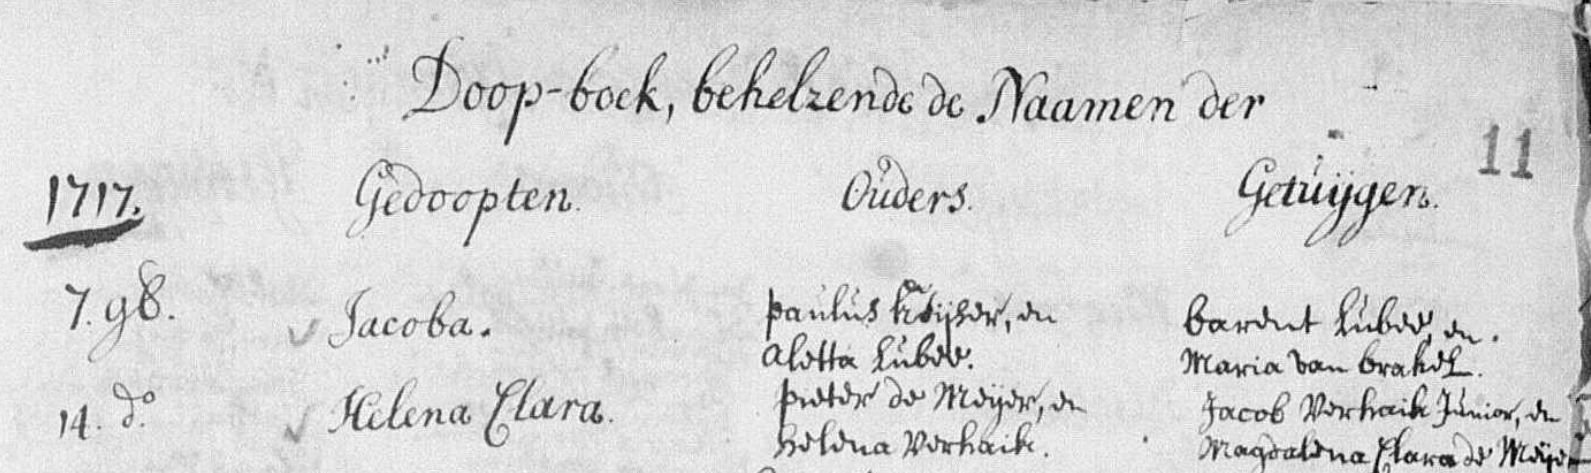 Doop-boek, behelzende de Naamen der
11
1717. Gedoopten. Ouders. Getuijgen.
7. 98. Jacoba. paulus Keijser, en barent Lubee, en.
Aletta Lubee. Maria van brakel.
14. do. Helena Clara. pieter de Meijer, en Jacob Verhaik Junior, en
helena Verhaik. Magdalena Clara de Meije